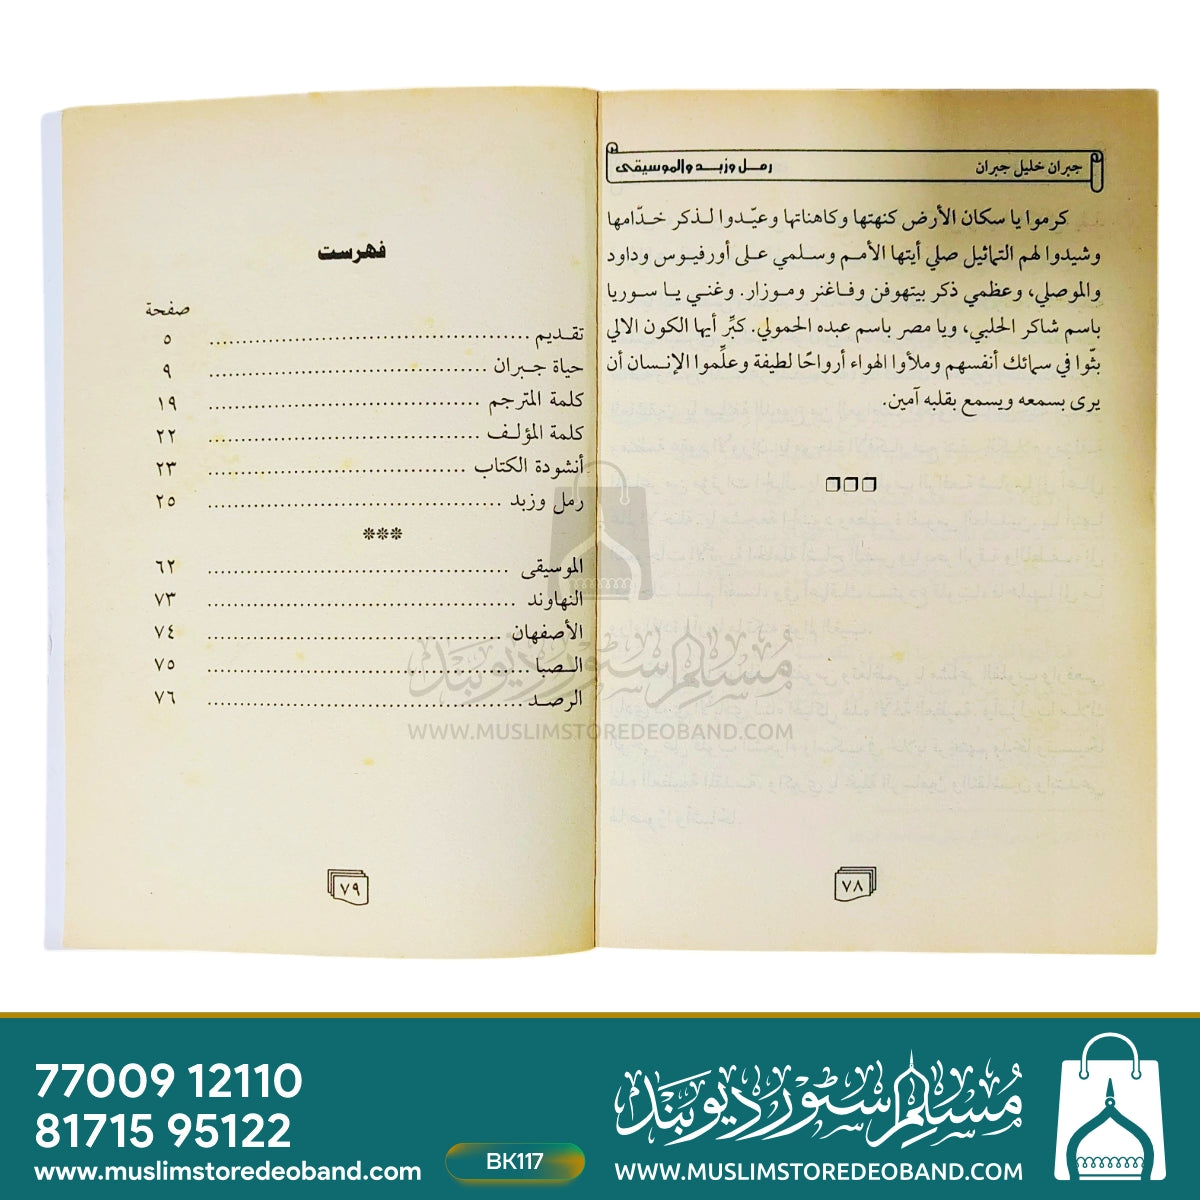 جبران خليل جبران
رمل وزبد والموسيقى
كرموا يا سكان الأرض كنهتها وكاهناتها وعيّدوا لذكر خدّامها
وشيدوا لهم التماثيل صلي أيتها الأمم وسلمي على أورفيوس وداود
والموصلي، وعظمي ذكر بيتهوفن وفاغنر وموزار. وغني يا سوريا
باسم شاكر الحلبي، ويا مصر باسم عبده الحمولي. كبِّر أيها الكون الالي
بثّوا في سمائك أنفسهم وملأوا الهواء أرواحًا لطيفة وعلِّموا الإنسان أن
يرى بسمعه ويسمع بقلبه آمين.
٧٨
فهرست
صفحة
تقديم ........ ٥
حياة جبران ........ ٩
كلمة المترجم ........ ١٩
كلمة المؤلف ........ ٢٢
أنشودة الكتاب ........ ٢٣
رمل وزبد ........ ٢٥
***
الموسيقى ........ ٦٢
النهاوند ........ ٧٣
الأصفهان ........ ٧٤
الصبا ........ ٧٥
الرصد ........ ٧٦
٧٩
مسلم سٹور دیوبند
WWW.MUSLIMSTOREDEOBAND.COM
77009 12110
81715 95122
www.muslimstoredeoband.com
BK117
مسلم سٹور دیوبند
WWW.MUSLIMSTOREDEOBAND.COM